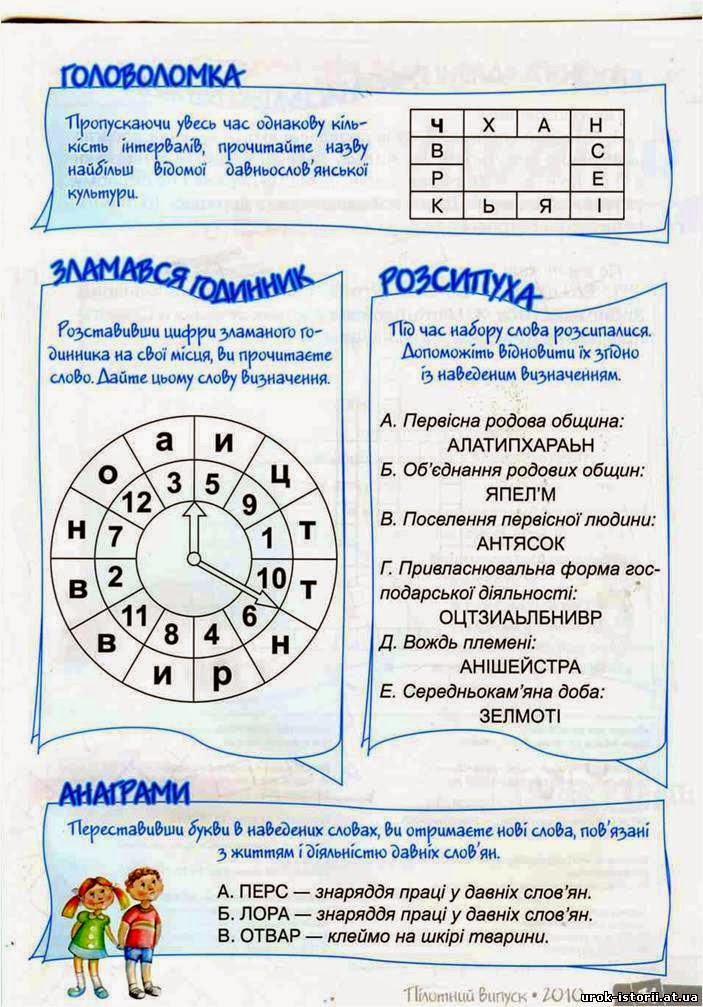 ГОЛОВОЛОМКА
Пропускаючи увесь час однакову кіль-
кість інтервалів, прочитайте назву
найбільш відомої давньослов'янської
культури.
Ч Х А Н
В С
Р Е
К Ь Я І
ЗЛАМАВСЯ ГОДИННИК
Розставивши цифри зламаного го-
динника на свої місця, ви прочитаєте
слово. Дайте цьому слову визначення.
а и ц т т н р и в в н о
3 5 9 1 10 6 4 8 11 2 7 12
РОЗСИПУХА
Під час набору слова розсипалися.
Допоможіть відновити їх згідно
із наведеним визначенням.
А. Первісна родова община:
АЛАТИПХАРАЬН
Б. Об'єднання родових общин:
ЯПЕЛ'М
В. Поселення первісної людини:
АНТЯСОК
Г. Привласнювальна форма гос-
подарської діяльності:
ОЦТЗИАЬЛБНИВР
Д. Вождь племені:
АНІШЕЙСТРА
Е. Середньокам'яна доба:
ЗЕЛМОТІ
АНАГРАМИ
Переставивши букви в наведених словах, ви отримаєте нові слова, пов'язані
з життям і діяльністю давніх слов'ян.
А. ПЕРС — знаряддя праці у давніх слов'ян.
Б. ЛОРА — знаряддя праці у давніх слов'ян.
В. ОТВАР — клеймо на шкірі тварини.
Пілотний випуск • 2010
urok-istorii.at.ua